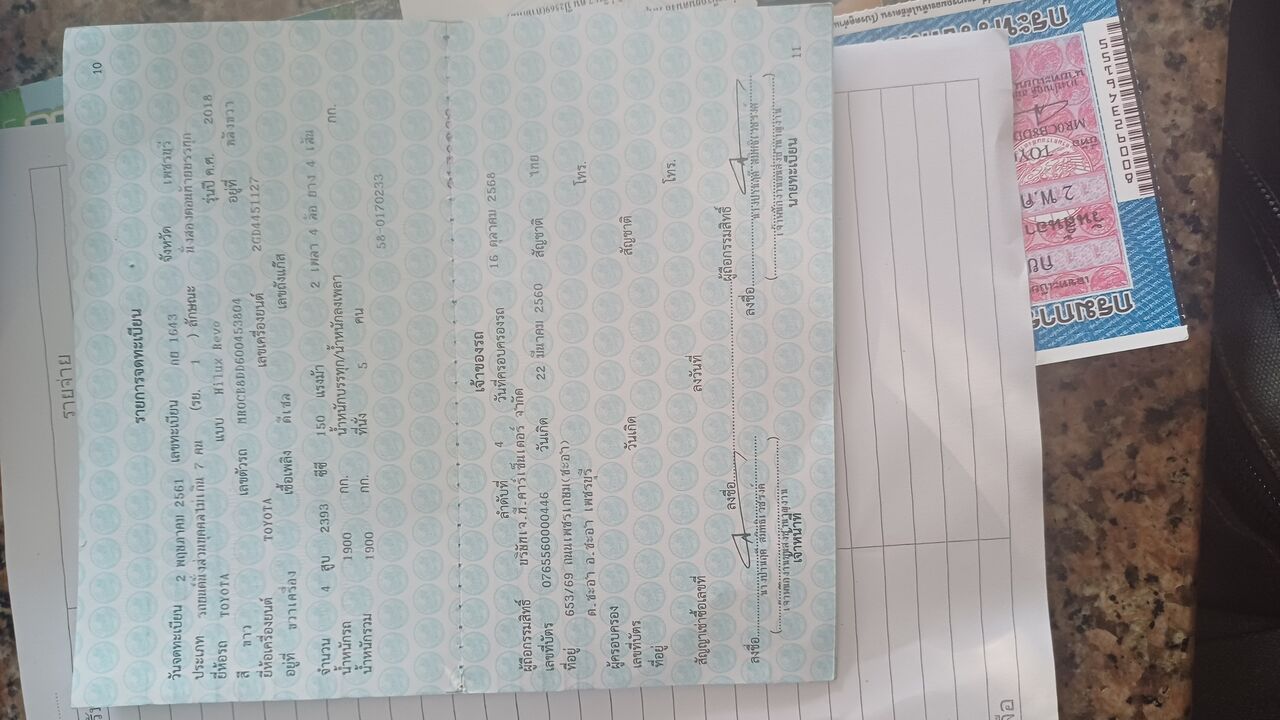 10
รายการจดทะเบียน
วันจดทะเบียน 2 พฤษภาคม 2561 เลขทะเบียน กย 1643 จังหวัด เพชรบุรี
ประเภท รถยนต์นั่งส่วนบุคคลไม่เกิน 7 คน (รย. 1 ) ลักษณะ นั่งสองตอนท้ายบรรทุก
ยี่ห้อรถ TOYOTA แบบ Hilux Revo รุ่นปี ค.ศ. 2018
สี ขาว เลขตัวรถ MR0CB8DD600453804 อยู่ที่ หลังขวา
ยี่ห้อเครื่องยนต์ TOYOTA เลขเครื่องยนต์ 2GD4451127
อยู่ที่ ขวาเครื่อง เชื้อเพลิง ดีเซล เลขถังแก๊ส
จำนวน 4 สูบ 2393 ซีซี 150 แรงม้า 2 เพลา 4 ล้อ ยาง 4 เส้น
น้ำหนักรถ 1900 กก. น้ำหนักบรรทุก/น้ำหนักลงเพลา กก.
น้ำหนักรวม 1900 กก. ที่นั่ง 5 คน 58-0170233
เจ้าของรถ
ลำดับที่ 4 วันที่ครอบครองรถ 16 ตุลาคม 2568
ผู้ถือกรรมสิทธิ์ บริษัทเจ.ที.คาร์เซ็นเตอร์ จำกัด
เลขที่บัตร 0765560000446 วันเกิด 22 มีนาคม 2560 สัญชาติ ไทย
ที่อยู่ 653/69 ถนนเพชรเกษม(ชะอำ) โทร.
ต.ชะอำ อ.ชะอำ เพชรบุรี
ผู้ครอบครอง
เลขที่บัตร วันเกิด สัญชาติ
ที่อยู่ โทร.
สัญญาเช่าซื้อเลขที่ ลงวันที่
ลงชื่อ ผู้ถือกรรมสิทธิ์
ลงชื่อ ลงชื่อ
เจ้าหน้าที่ นายทะเบียน
11
รายจ่าย
MR0CB8DD
2 พ.ค
กย
6009234 9155